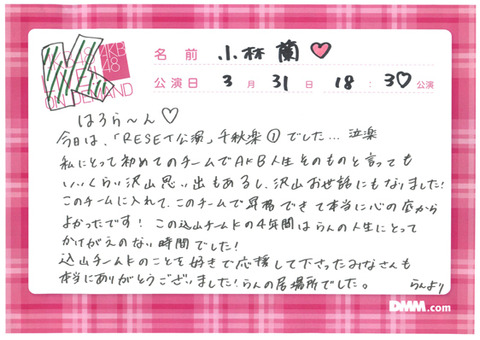 AKB
48
ON DEMAND
名前 小林蘭♡
公演日 3月31日 18:30公演
はろら〜ん♡
今日は、「RESET公演」千秋楽①でした…泣楽
私にとって初めてのチームでAKB人生そのものと言っても
いいくらい沢山思い出もあるし、沢山お世話にもなりました！
このチームに入れて、このチームで昇格できて本当に心の底から
よかったです！この込山チームKの4年間はらんの人生にとって
かけがえのない時間でした！
込山チームKのことを好きで応援して下さったみなさんも
本当にありがとうございました！らんの居場所でした。
らんより
DMM.com